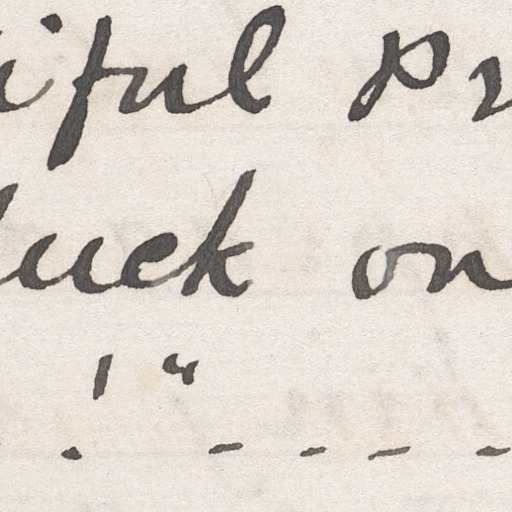 iful pr
luck on
. !" - - - -